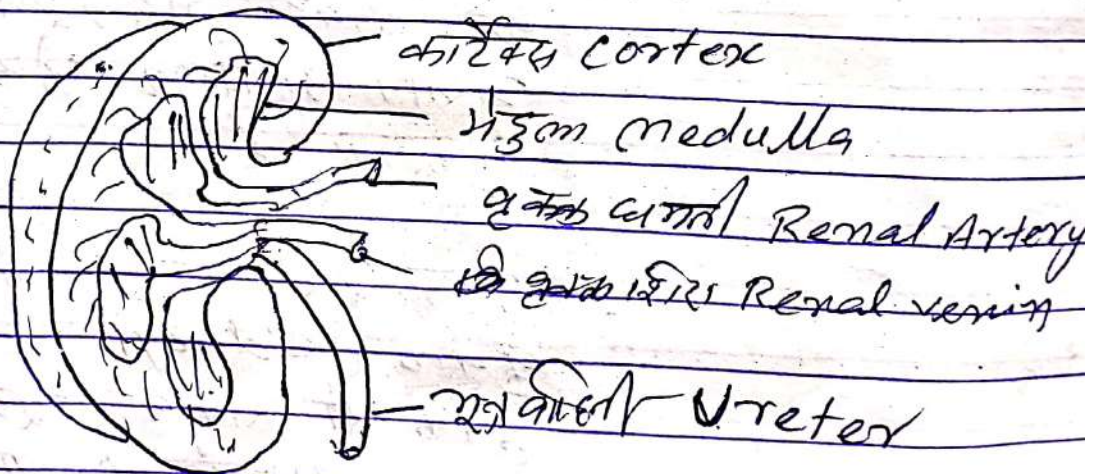 कार्टेक्स Cortex
मेडुला Medulla
वृक्क धमनी Renal Artery
वृक्क शिरा Renal venin
मूत्र वाहिनी Ureter